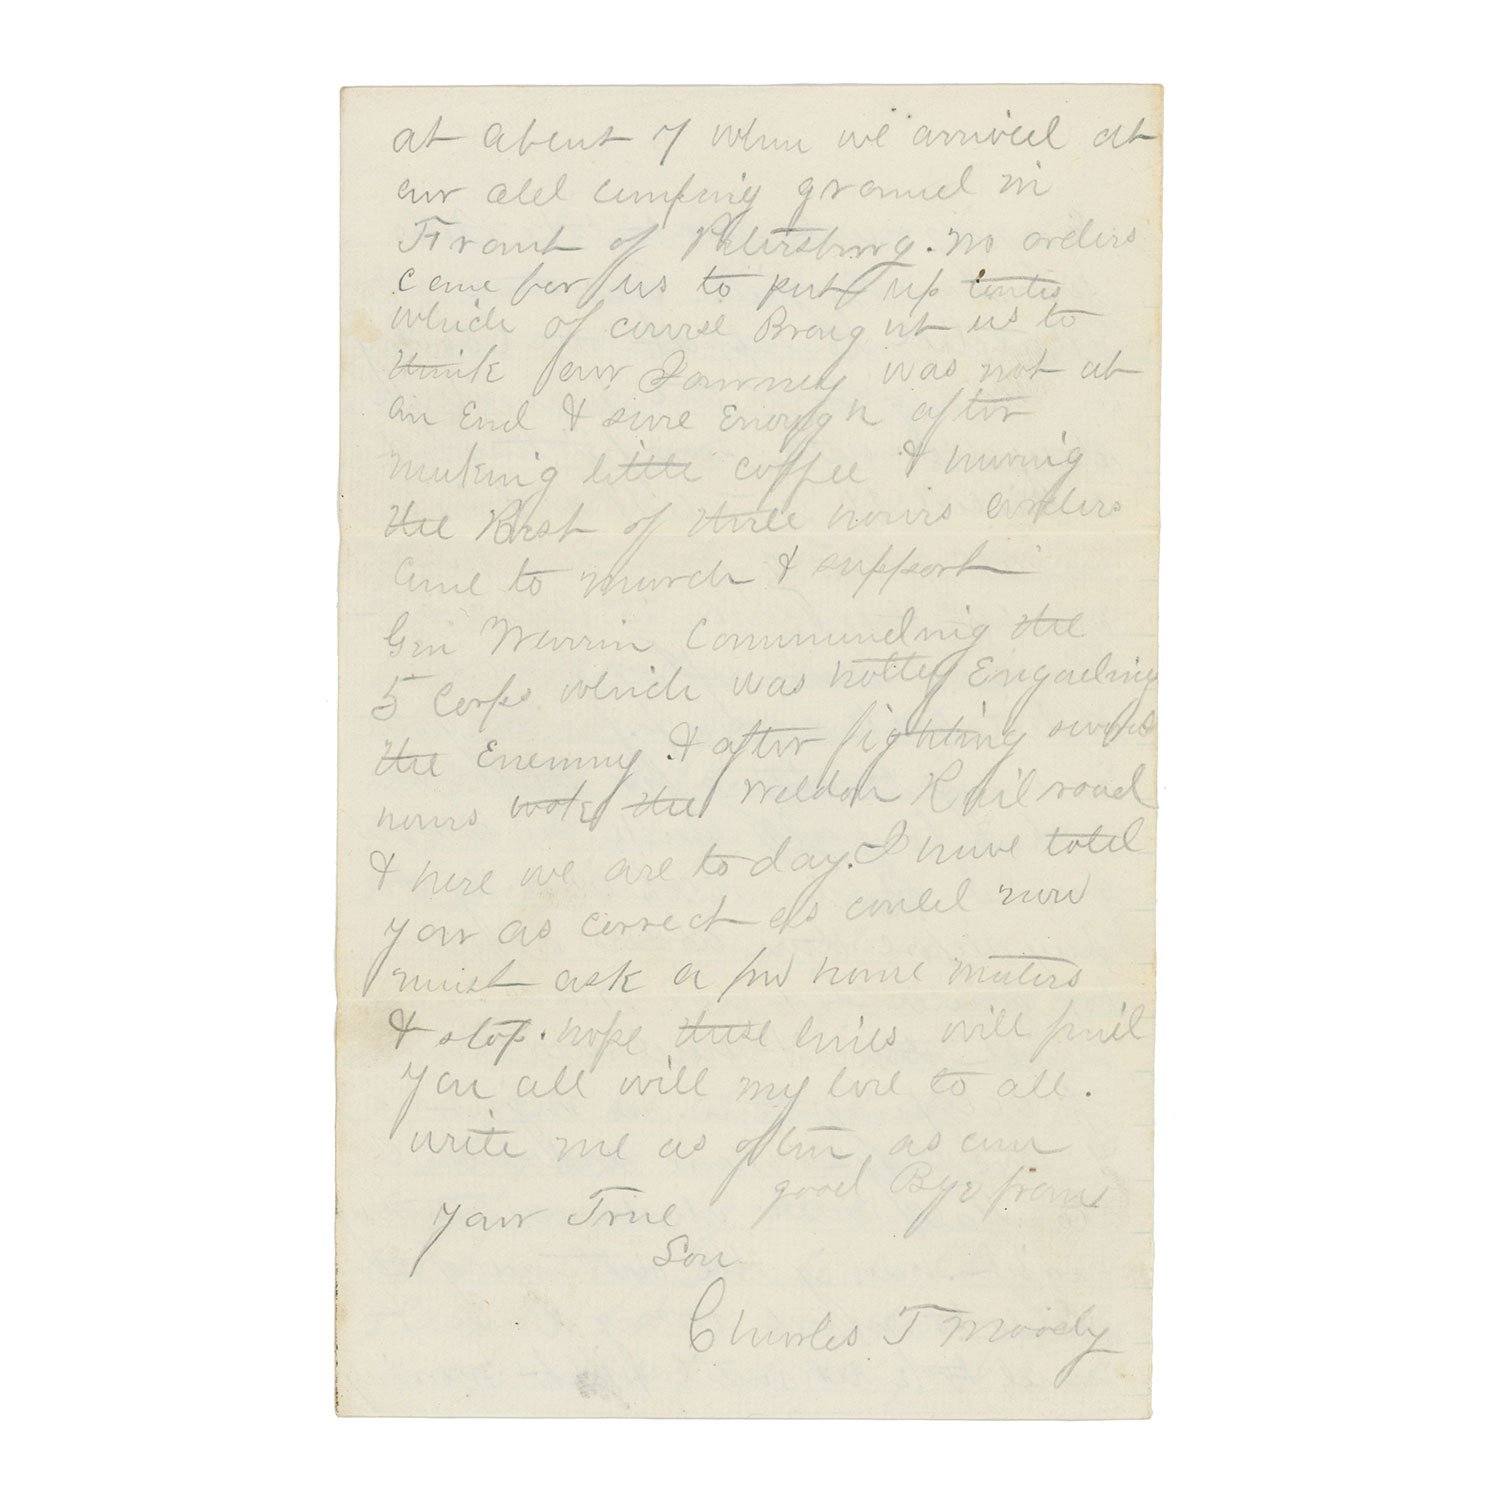 at about 7 when we arrived at
our old camping ground in
Front of Petersburg. no orders
came for us to put up tents
which of course Brought us to
think our Journey was not at
an End & sure Enough after
making little coffee & having
the Rest of three hours orders
came to march & support
Gen Warrin Commanding the
5 Corps which was hotley Engadeing
the Enemmy. & after fighting
hours the Weldon Railroad
& here we are to day. I have told
you as correct as could now
must ask a few home maters
& stop. hope these lines will find
you all will my love to all.
write me as often as can
good Bye from
your True
Son
Charles T Moody